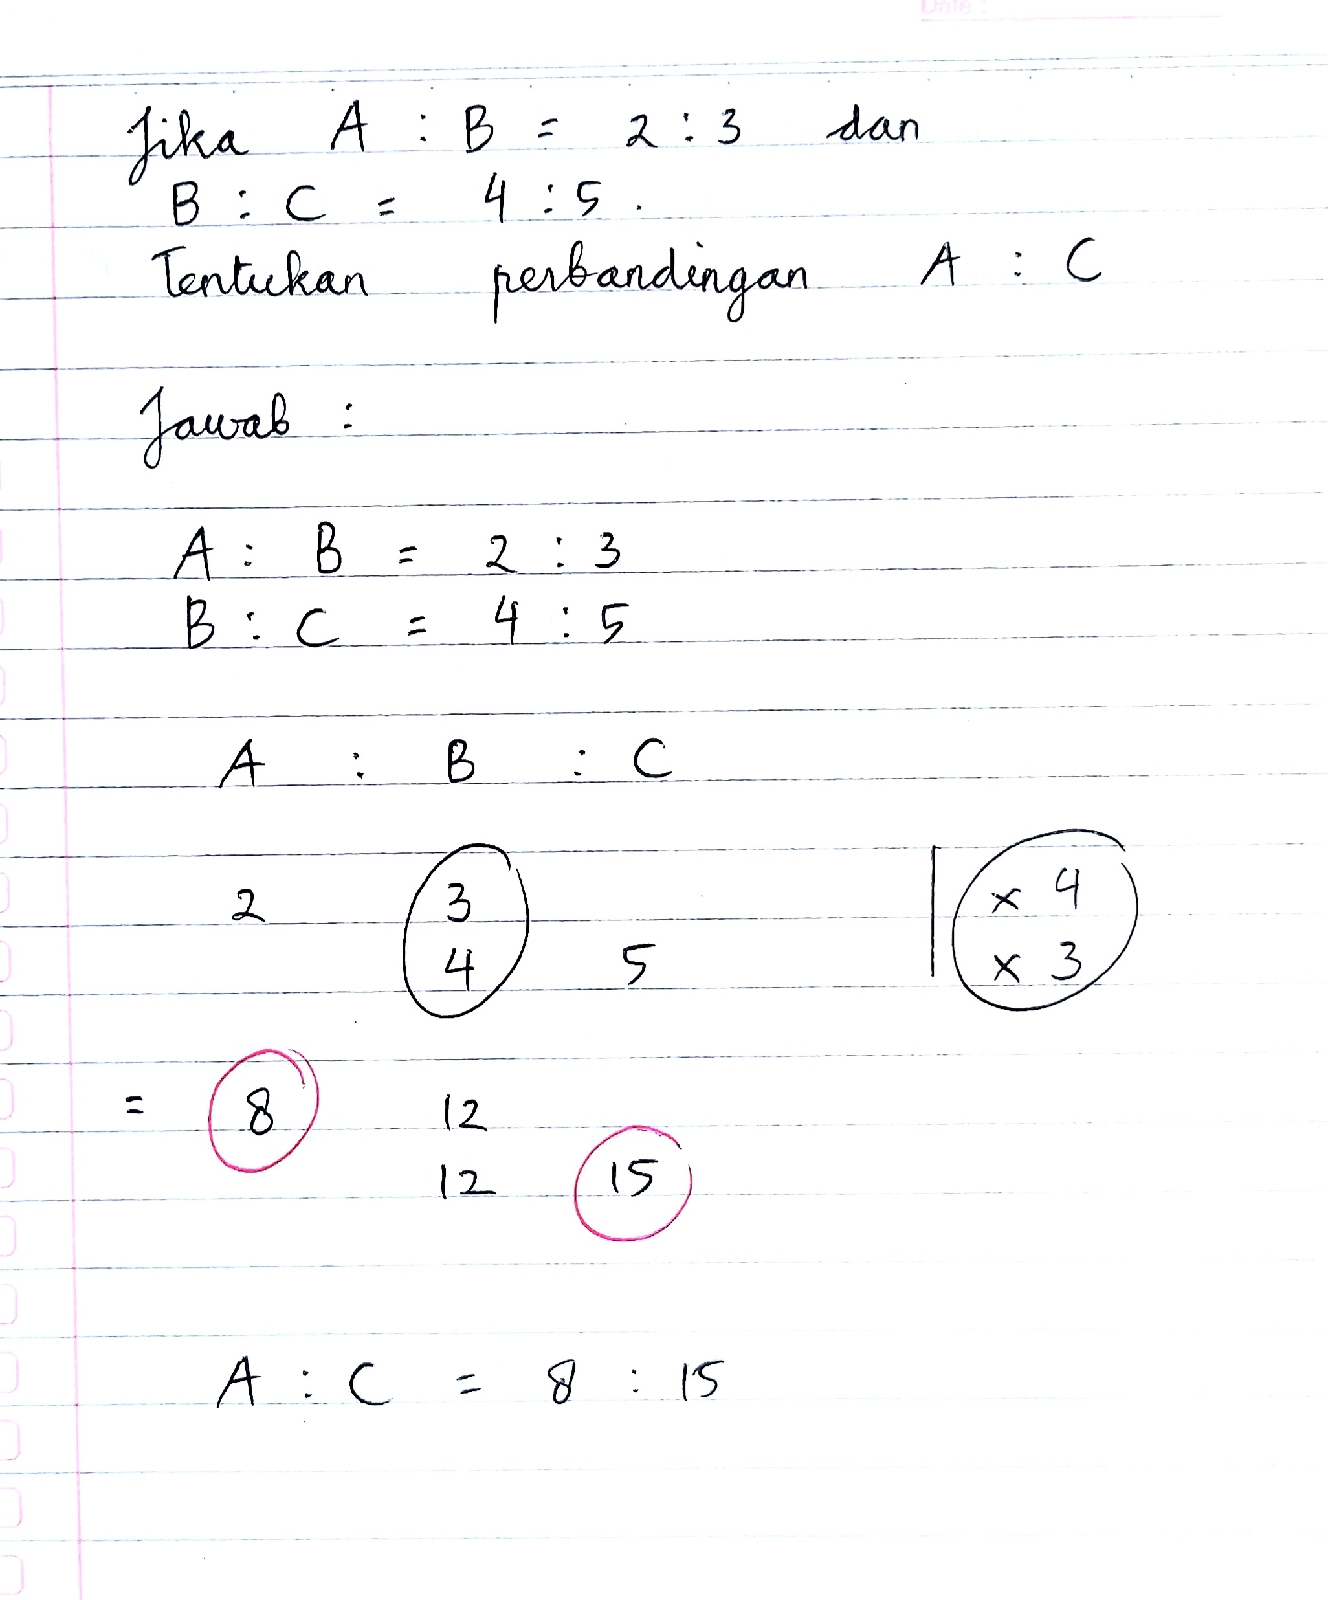 Date :
Jika A : B = 2 : 3 dan
B : C = 4 : 5 .
Tentukan perbandingan A : C
Jawab :
A : B = 2 : 3
B : C = 4 : 5
A : B : C
2 3 | x 4
4 5 x 3
= 8 12
12 15
A : C = 8 : 15